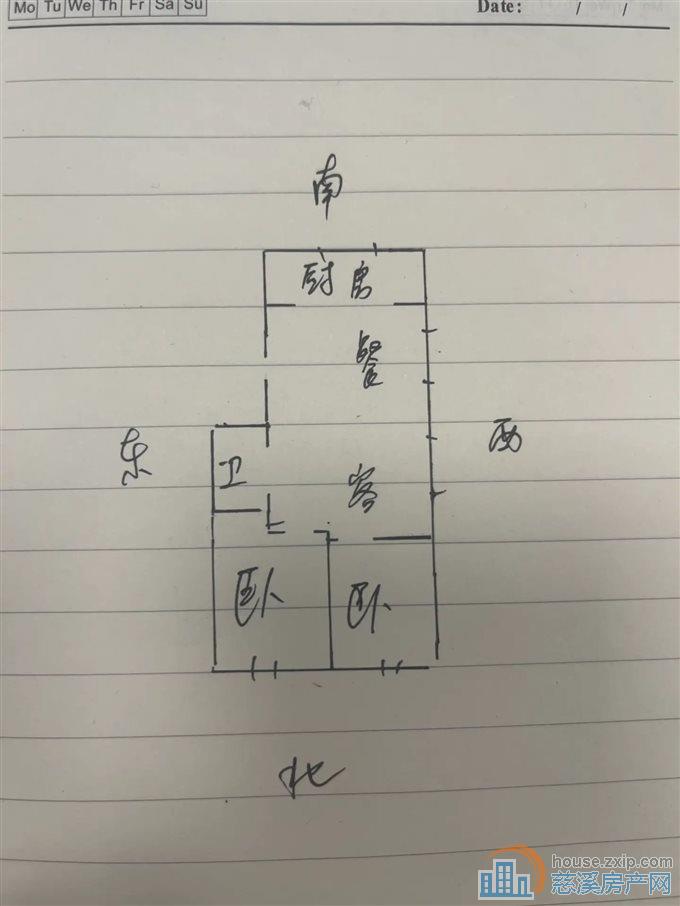 Mo Tu We Th Fr Sa Su
Date: / /
南
厨房
餐
东
西
卫
客
卧
卧
北
house.zxip.com
慈溪房产网